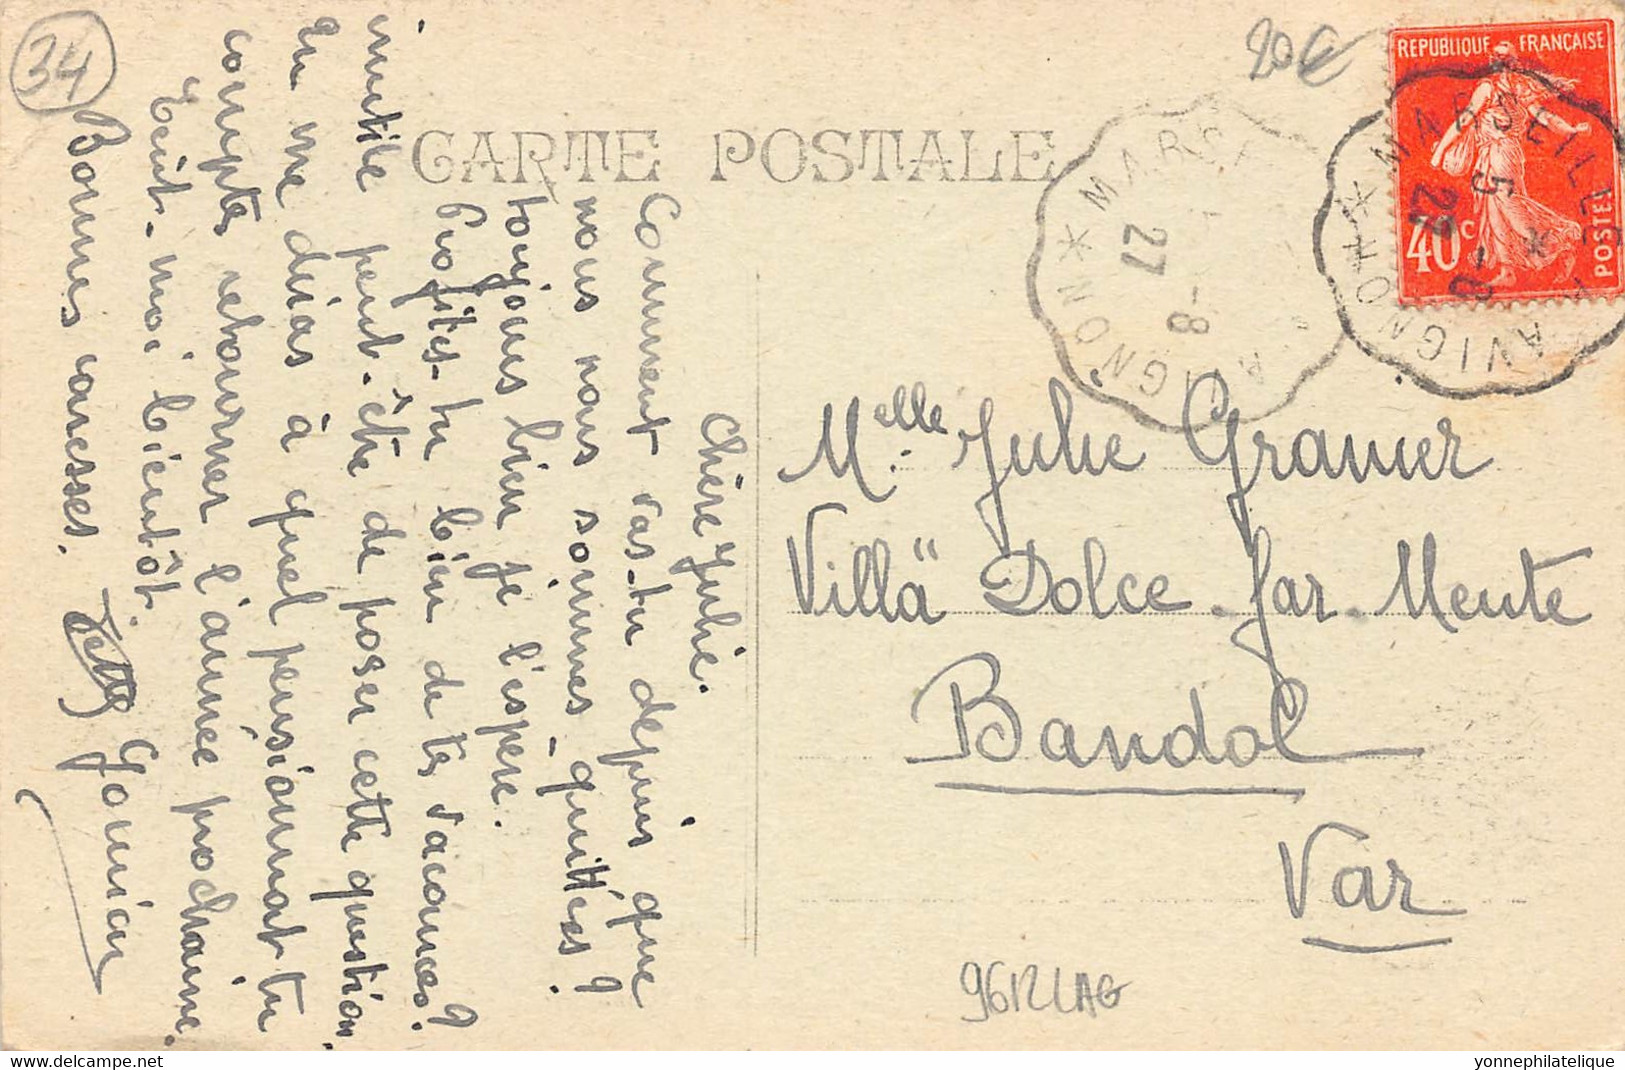 34
20€
REPUBLIQUE FRANÇAISE
40c
POSTES
MARSEILLE * AVIGNON *
5-8
27
MARSE AVIGNON *
-8
27
CARTE POSTALE
Chère Julie.
Comment vas-tu depuis que
nous nous sommes quittées ?
toujours bien je l'espère.
Profites-tu bien de tes vacances ?
inutile peut-être de poser cette question.
Tu me diras à quel pensionnat tu
comptes retourner l'année prochaine.
Ecrit-moi bientôt.
Bonnes caresses.
Melle Julie Granier
Villa "Dolce-far-Mente
Bandol
Var
9612LAG
yonnephilatelique